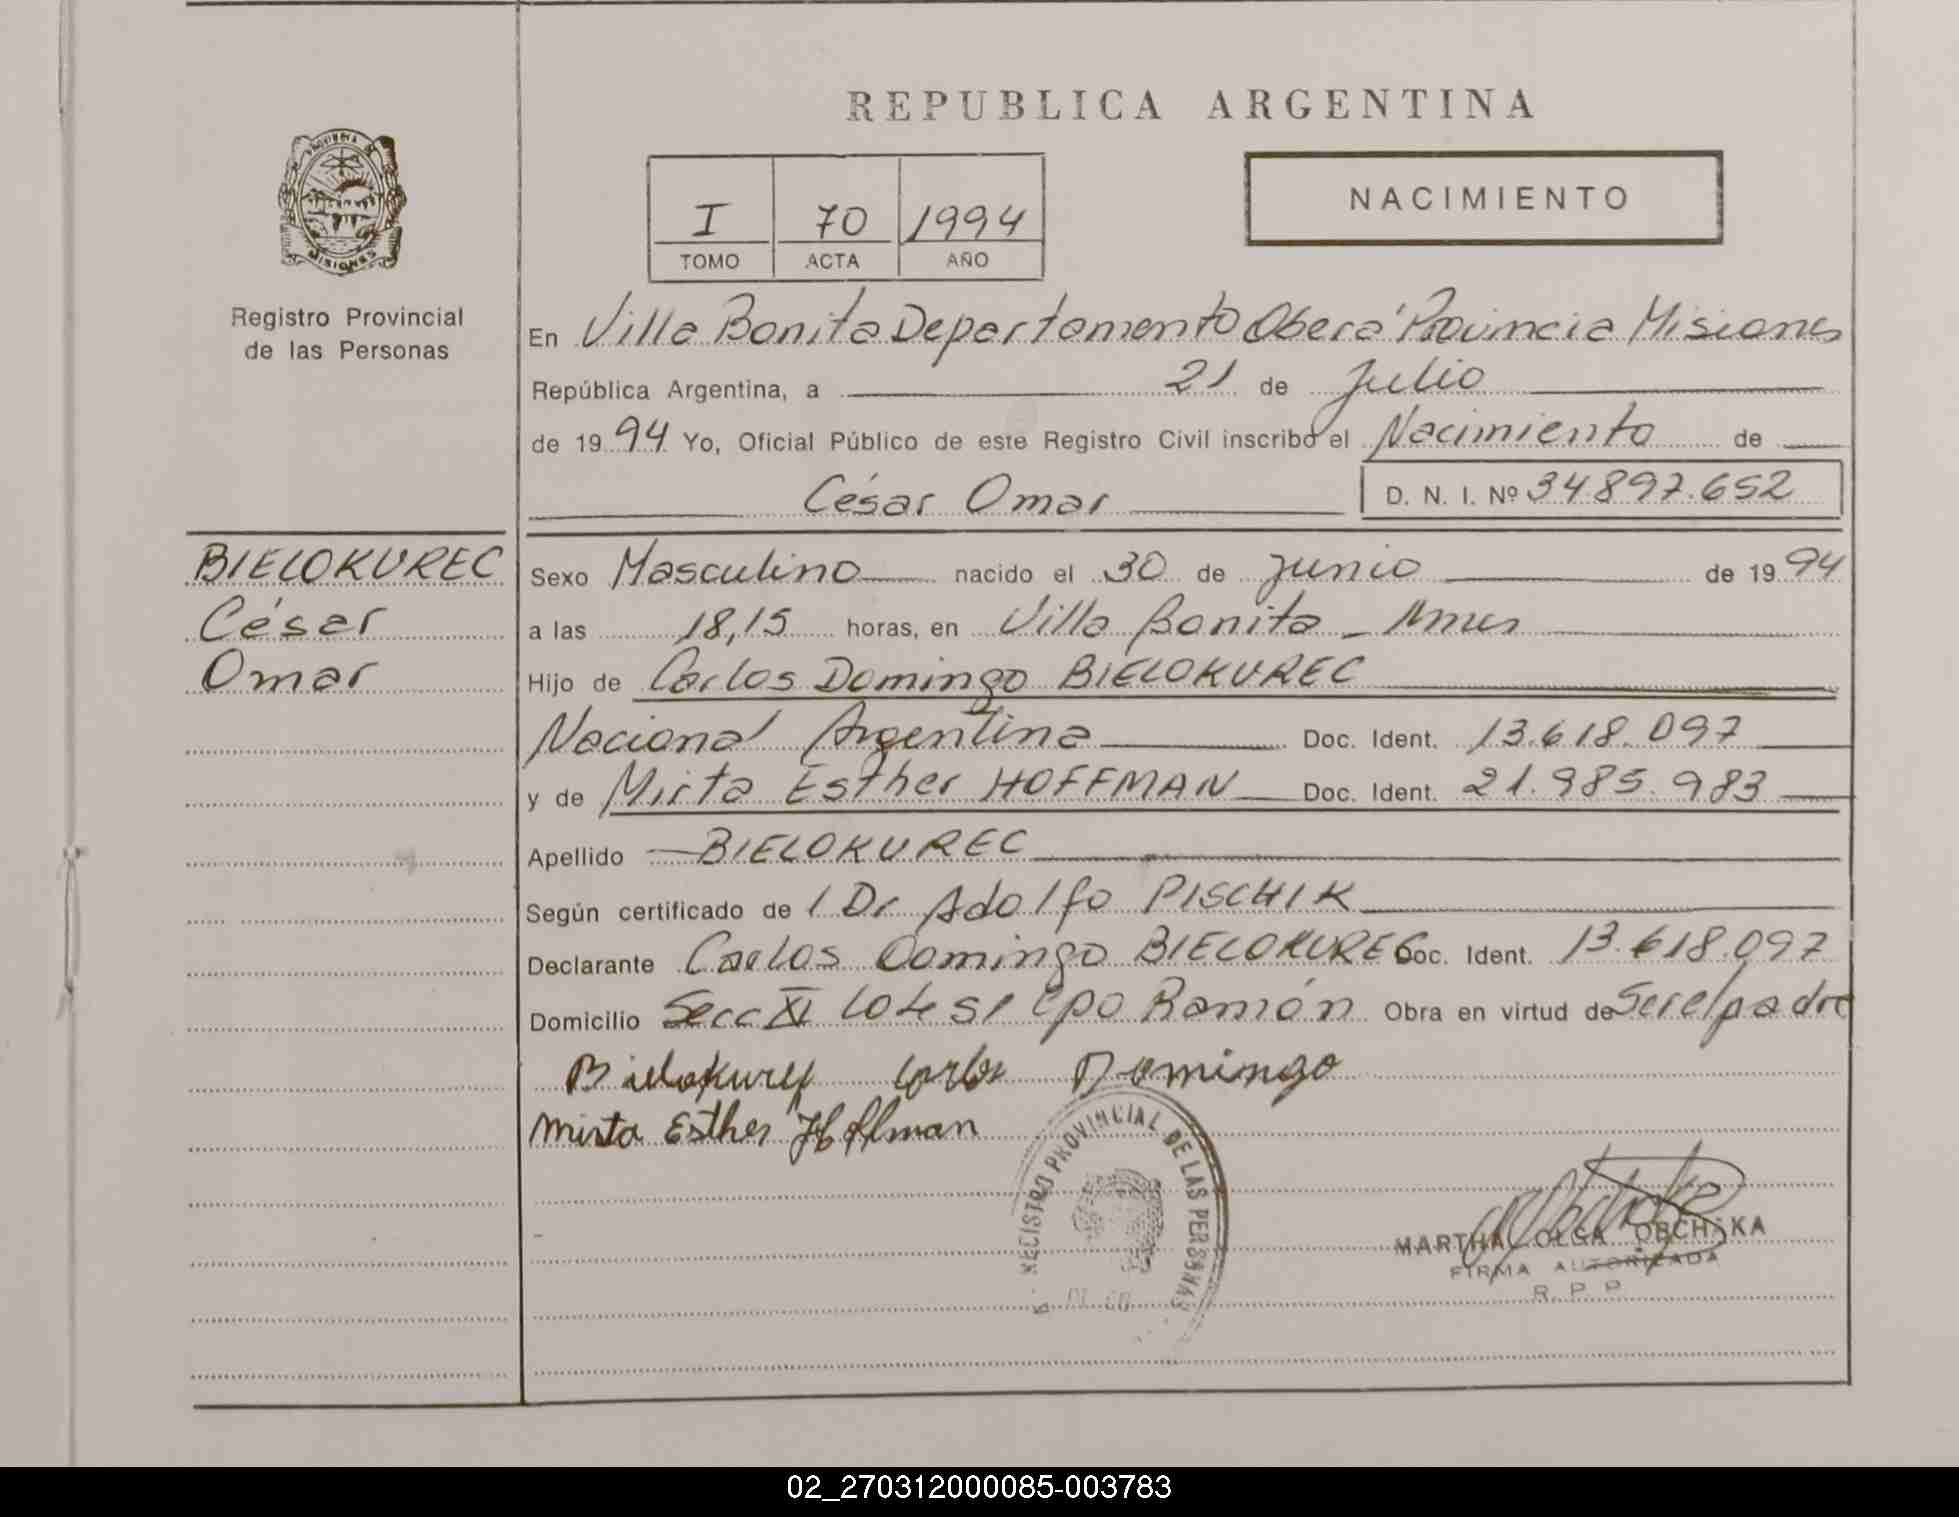 REPUBLICA ARGENTINA
PROVINCIA DE
MISIONES
Registro Provincial
de las Personas
I 70 1994
TOMO ACTA AÑO
NACIMIENTO
En Villa Bonita Departamento Oberá Provincia Misiones
República Argentina, a 21 de Julio
de 1994 Yo, Oficial Público de este Registro Civil inscribo el Nacimiento de
César Omar D. N. I. Nº 34897.652
BIELOKUREC
César
Omar
Sexo Masculino nacido el 30 de Junio de 1994
a las 18,15 horas, en Villa Bonita -
Hijo de Carlos Domingo BIELOKUREC
Nacional Argentina Doc. Ident. 13.618.097
y de Mirta Esther HOFFMAN Doc. Ident. 21.985.983
Apellido BIELOKUREC
Según certificado de / Dr Adolfo PISCHIK
Declarante Carlos Domingo BIELOKUREC Doc. Ident. 13.618.097
Domicilio Secc XI Lote 51 Cpo Ramón Obra en virtud de Ser el padre
Bielokurec Carlos Domingo
Mirta Esther Hoffman
REGISTRO PROVINCIAL DE LAS PERSONAS
MARTHA OLGA OBCHAKA
FIRMA AUTORIZADA
R. P. P.
02_270312000085-003783